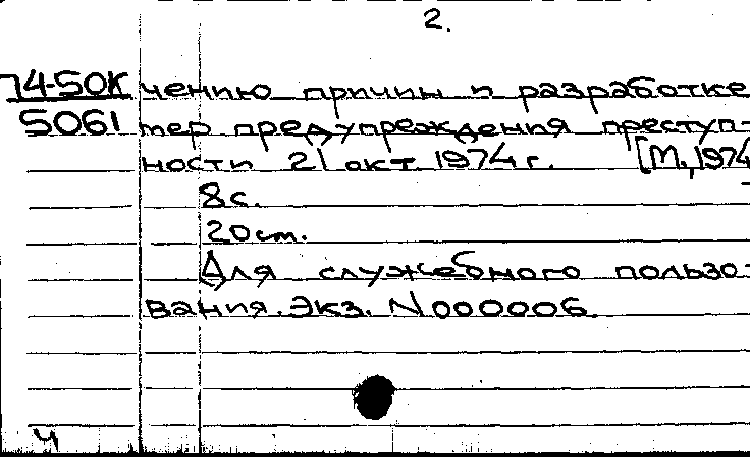 2.
74-50К чению причин и разработке
5061 мер предупреждения преступ-
ности 21 окт. 1974 г. [М., 1974
8 с.
20 см.
Для служебного пользо-
вания. Экз. N 000006.
Ч